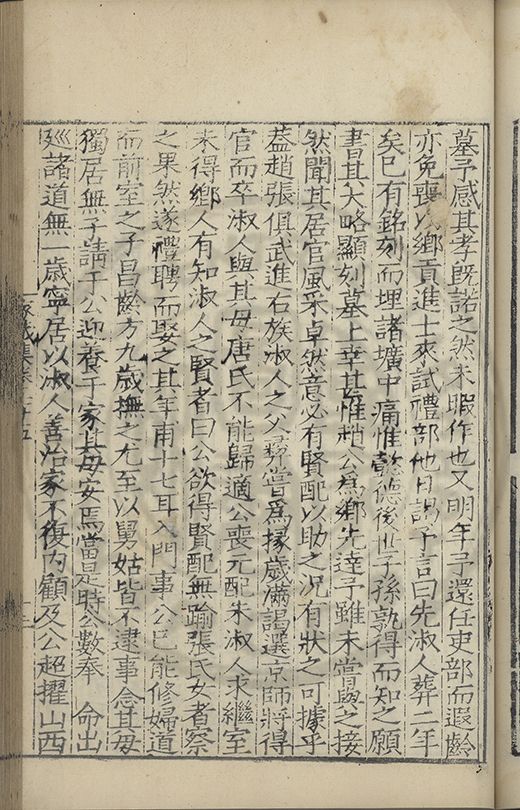 墓予感其孝既諾之然未暇作也又明年予還任吏部而遐齡
亦免喪以鄉貢進士來試禮部他日謁予言曰先淑人葬二年
矣已有銘刻而埋諸壙中痛惟懿德後世子孫孰得而知之願
書其大略顯刻墓上幸甚惟趙公為鄉先達予雖未嘗與之接
然聞其居官風采卓然意必有賢配以助之况有狀之可據乎
葢趙張俱武進右族淑人之父嘗為掾歲滿謁選京師將得
官而卒淑人與其母唐氏不能歸適公喪元配朱淑人求繼室
未得鄉人有知淑人之賢者曰公欲得賢配無踰張氏女者察
之果然遂禮聘而娶之其年甫十七耳入門事公已能修婦道
而前室之子昌齡方九歲撫之尤至以舅姑皆不逮事念其母
獨居無子請于公迎養于家其母安焉當是時公數奉 命出
廵諸道無一歲寧居以淑人善治家不復內顧及公超擢山西
家藏集卷 十五